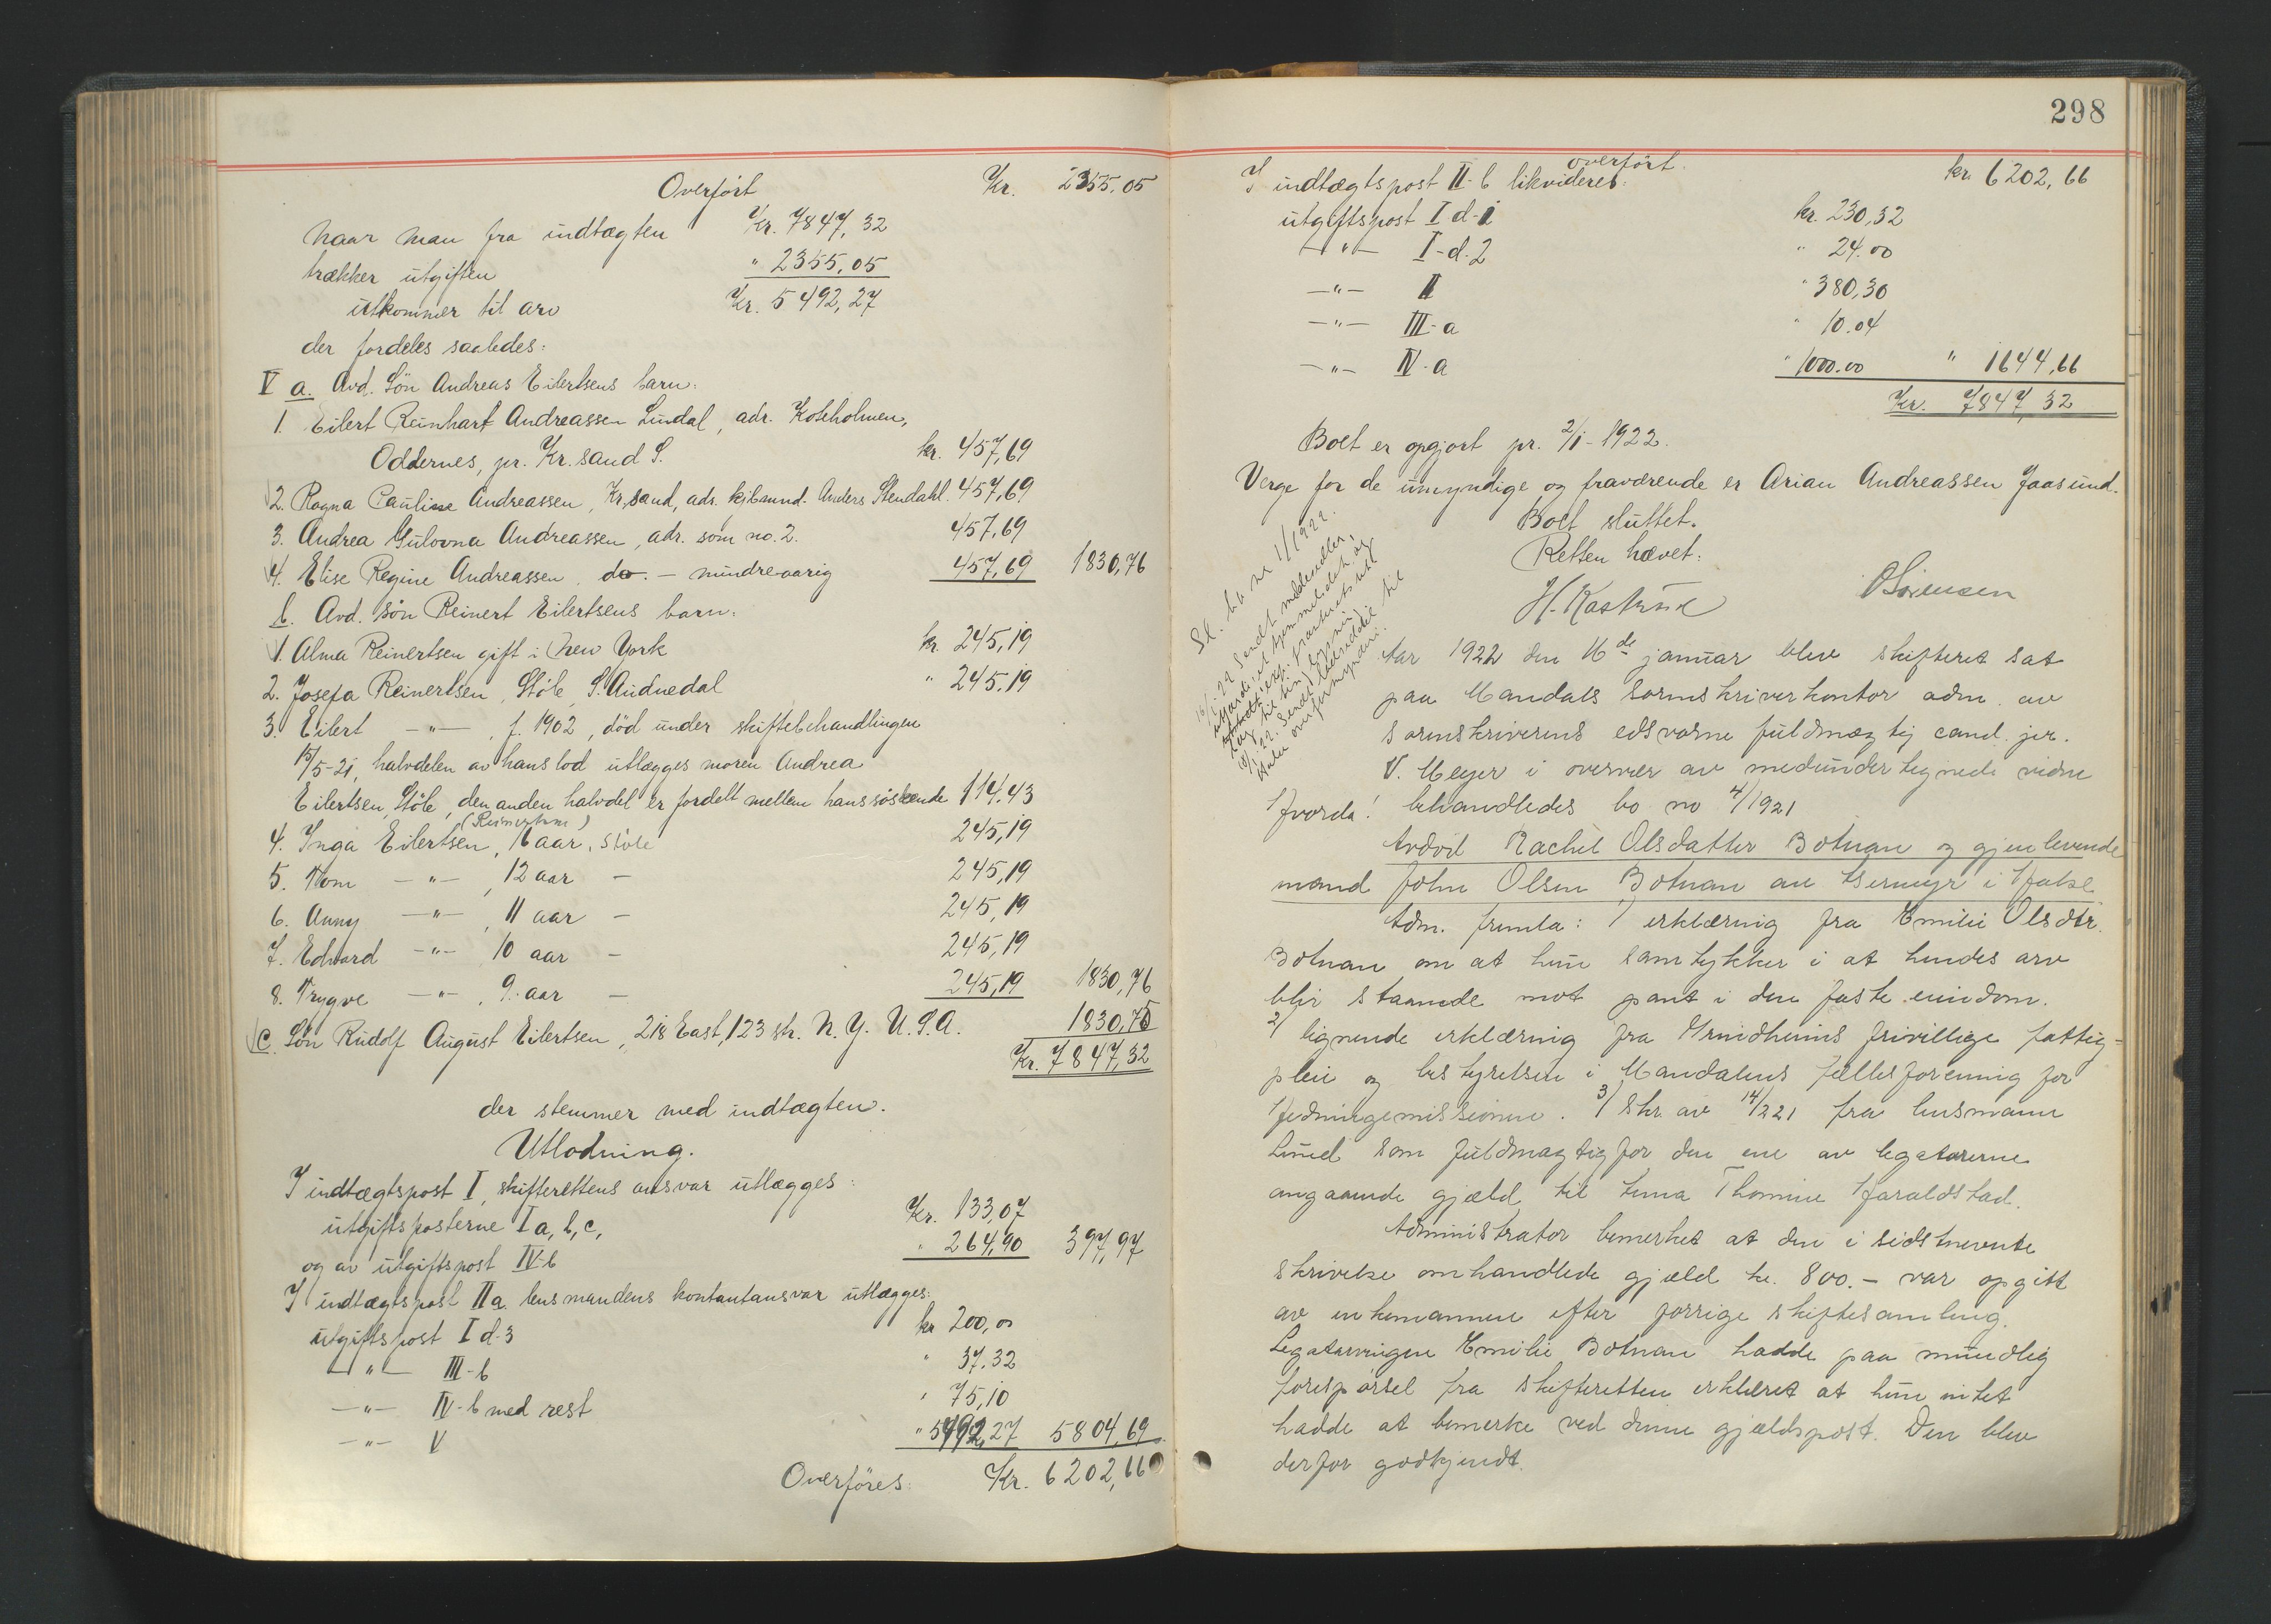 Overført Kr. 2355.05
Naar man fra indtægten Kr. 7847,32
trækker utgiften " 2355,05
utkommer til arv Kr. 5492,27
der fordeles saaledes:
V a. Avd. Sön Andreas Eilertsens barn:
1. Eilert Reinhart Andreassen Lindal, adr. Kolsholmen,
Oddernes, pr. Kr.sand S. kr. 457,69
2. Ragna Pauline Andreassen, Kr.sand, adr. kjøbmand. Anders Stendahl. 457,69
3. Andrea Gulovna Andreassen, adr. som no. 2. 457,69
4. Elise Regine Andreassen, do. – mindreaarig 457,69 1830,76
b. Avd. sön Reinert Eilertsens barn:
1. Alma Reinertsen gift i New York kr. 245,19
2. Josefa Reinertsen, Støle, S. Audnedal " 245,19
3. Eilert –"– , f. 1902, död under skiftebehandlingen
15/5-21, halvdelen av hans lod utlægges moren Andrea
Eilertsen, Støle, den anden halvdel er fordelt mellem hans söskende 114,43
(Reinertsen)
4. Inga Eilertsen, 16 aar, Støle 245,19
5. Tom –"– , 12 aar – 245,19
6. Anny –"– , 11 aar – 245,19
7. Edvard –"– 10 aar – 245,19
8. Trygve –"– , 9 aar – 245,19 1830,76
c. Sön Rudolf August Eilertsen, 218 East, 123 str. N. Y. U.S.A. 1830,75
Kr. 7847,32
der stemmer med indtægten.
Utlodning.
I indtægtspost I, skifterettens ansvar utlægges:
utgiftsposterne I a, b, c, Kr. 133,07
og av utgiftspost IV-b " 264,90 397,97
I indtægtspost II a lensmandens kontantansvar utlægges:
utgiftspost I d-3 kr 200,00
–"– III-b " 37.32
–"– IV-b med rest " 75,10
–"– V " 5492,27 5804,69
Overföres: Kr. 6202,66
298
overført.
I indtægtspost II-b likvideres: kr. 6202,66
utgiftspost I d-1 kr. 230,32
–"– I-d.2 " 24.00
–"– II " 380,30
–"– III-a " 10.04
–"– IV-a " 1000.00 " 1644,66
Kr. 7847,32
Boet er opgjort pr. 2/1-1922.
Verge for de umyndige og fraværende er Arian Andreassen Jaasund.
Boet sluttet.
Retten hævet:
O Sørensen
Aar 1922 den 16de januar blev skifteret sat
paa Mandals sorenskriverkontor adm. av
sorenskriverens edsvorne fuldmægtig cand. jur.
V. Meyer i overvær av medundertegnede vidne
Hvorda! behandledes bo no 4/1921
Avdød Rachel Olsdatter Botnan og gjenlevende
mand John Olsen Botnan av
Adm. fremla: 1/ erklæring fra Emilie Olsdtr.
Botnan om at hun samtykker i at hendes arv
blir staaende mot pant i den faste eiendom.
2/ lignende erklæring fra Grindheims frivillige fattig-
pleie og bestyrelsen i Mandalens fællesforening for
Hedningemissionen. 3/ Skr. av fra lensmann
Lund som fuldmægtig for den ene av legatarerne
angaaende gjæld til Anna Thomine Haraldstad.
Administrator bemerket at den i sidstnevnte
skrivelse omhandlede gjæld kr. 800.– var opgitt
av enkemannen efter forrige skiftesamling.
Legatarvingen Emilie Botnan hadde paa mundlig
forespørsel fra skifteretten erklæret at hun intet
hadde at bemerke ved denne gjældspost. Den blev
derfor godkjendt.